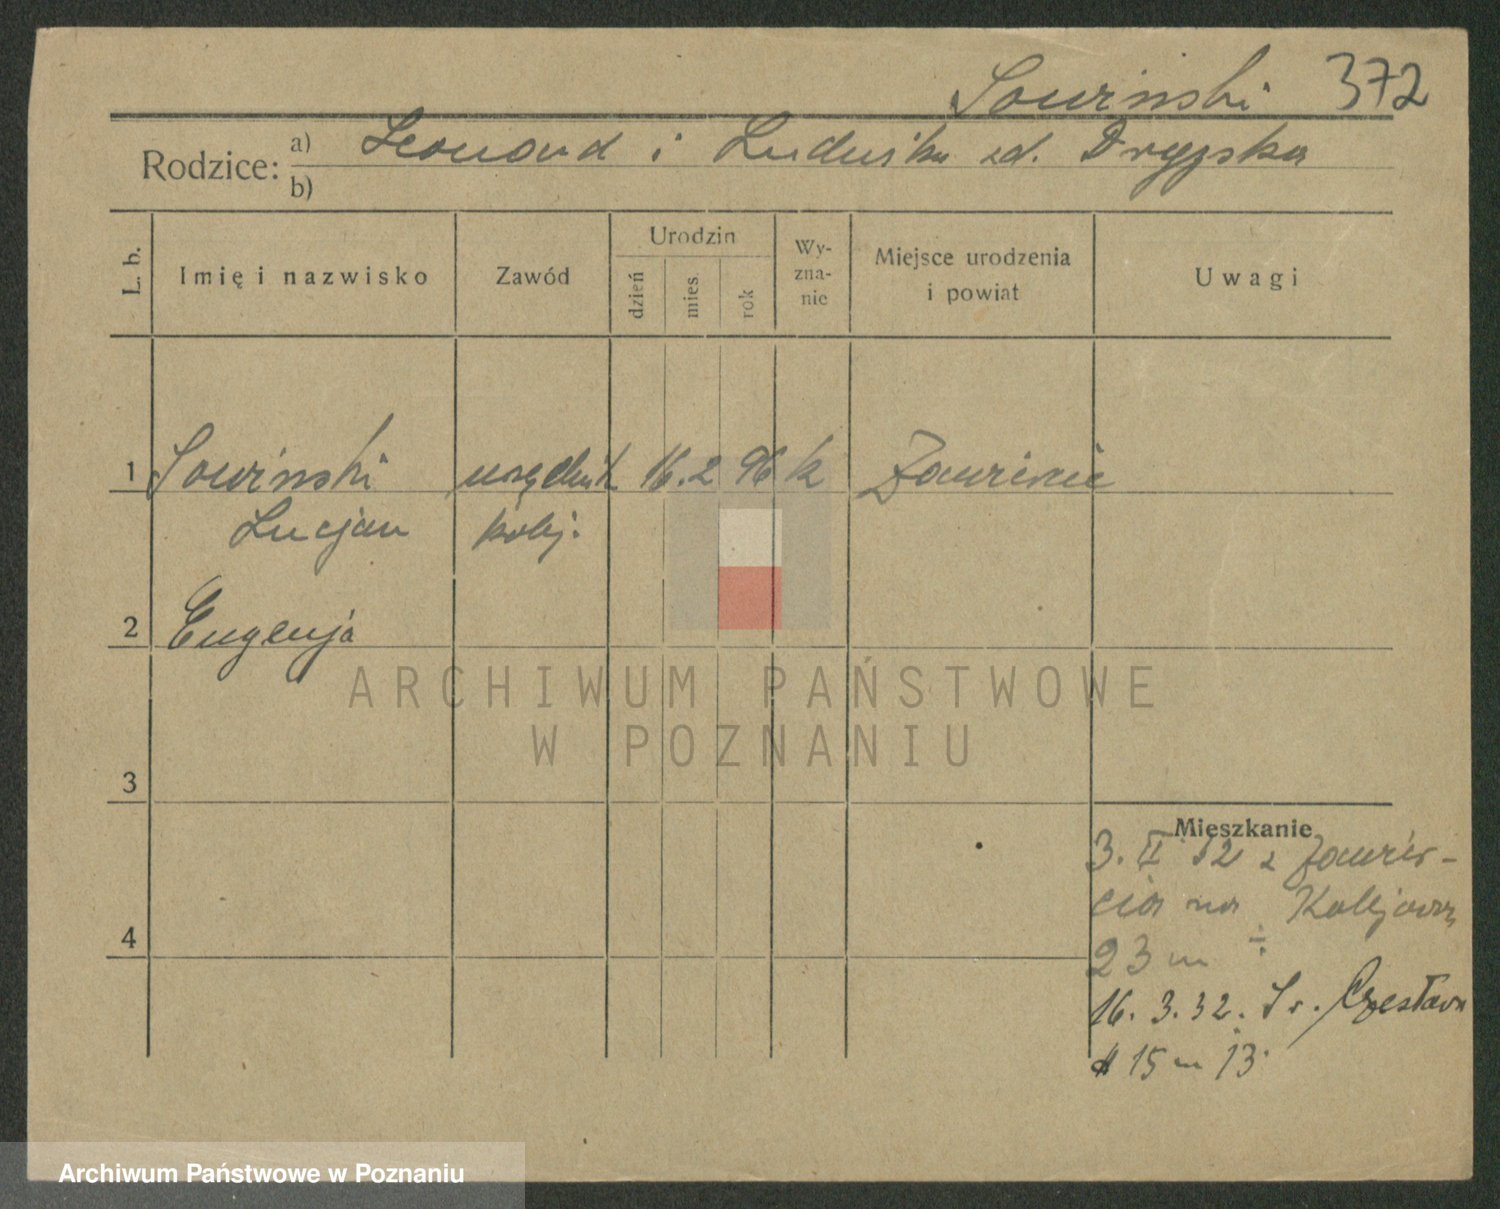 Sowiński 372
Rodzice: a) Leonard i Ludwika zd. Drygska
b)
L. b. Imię i nazwisko Zawód Urodzin dzień mies. rok Wy-zna-nie Miejsce urodzenia i powiat Uwagi
1 Sowiński urzędnik 16. 2 96 k Zawiercie
Lucjan kolej.
2 Eugenja
ARCHIWUM PAŃSTWOWE
W POZNANIU
3
Mieszkanie
3. II 32 z Zawier-
cia na Kolejową
4
23 m
16. 3. 32. Sr. Czesława
15 m 13.
Archiwum Państwowe w Poznaniu